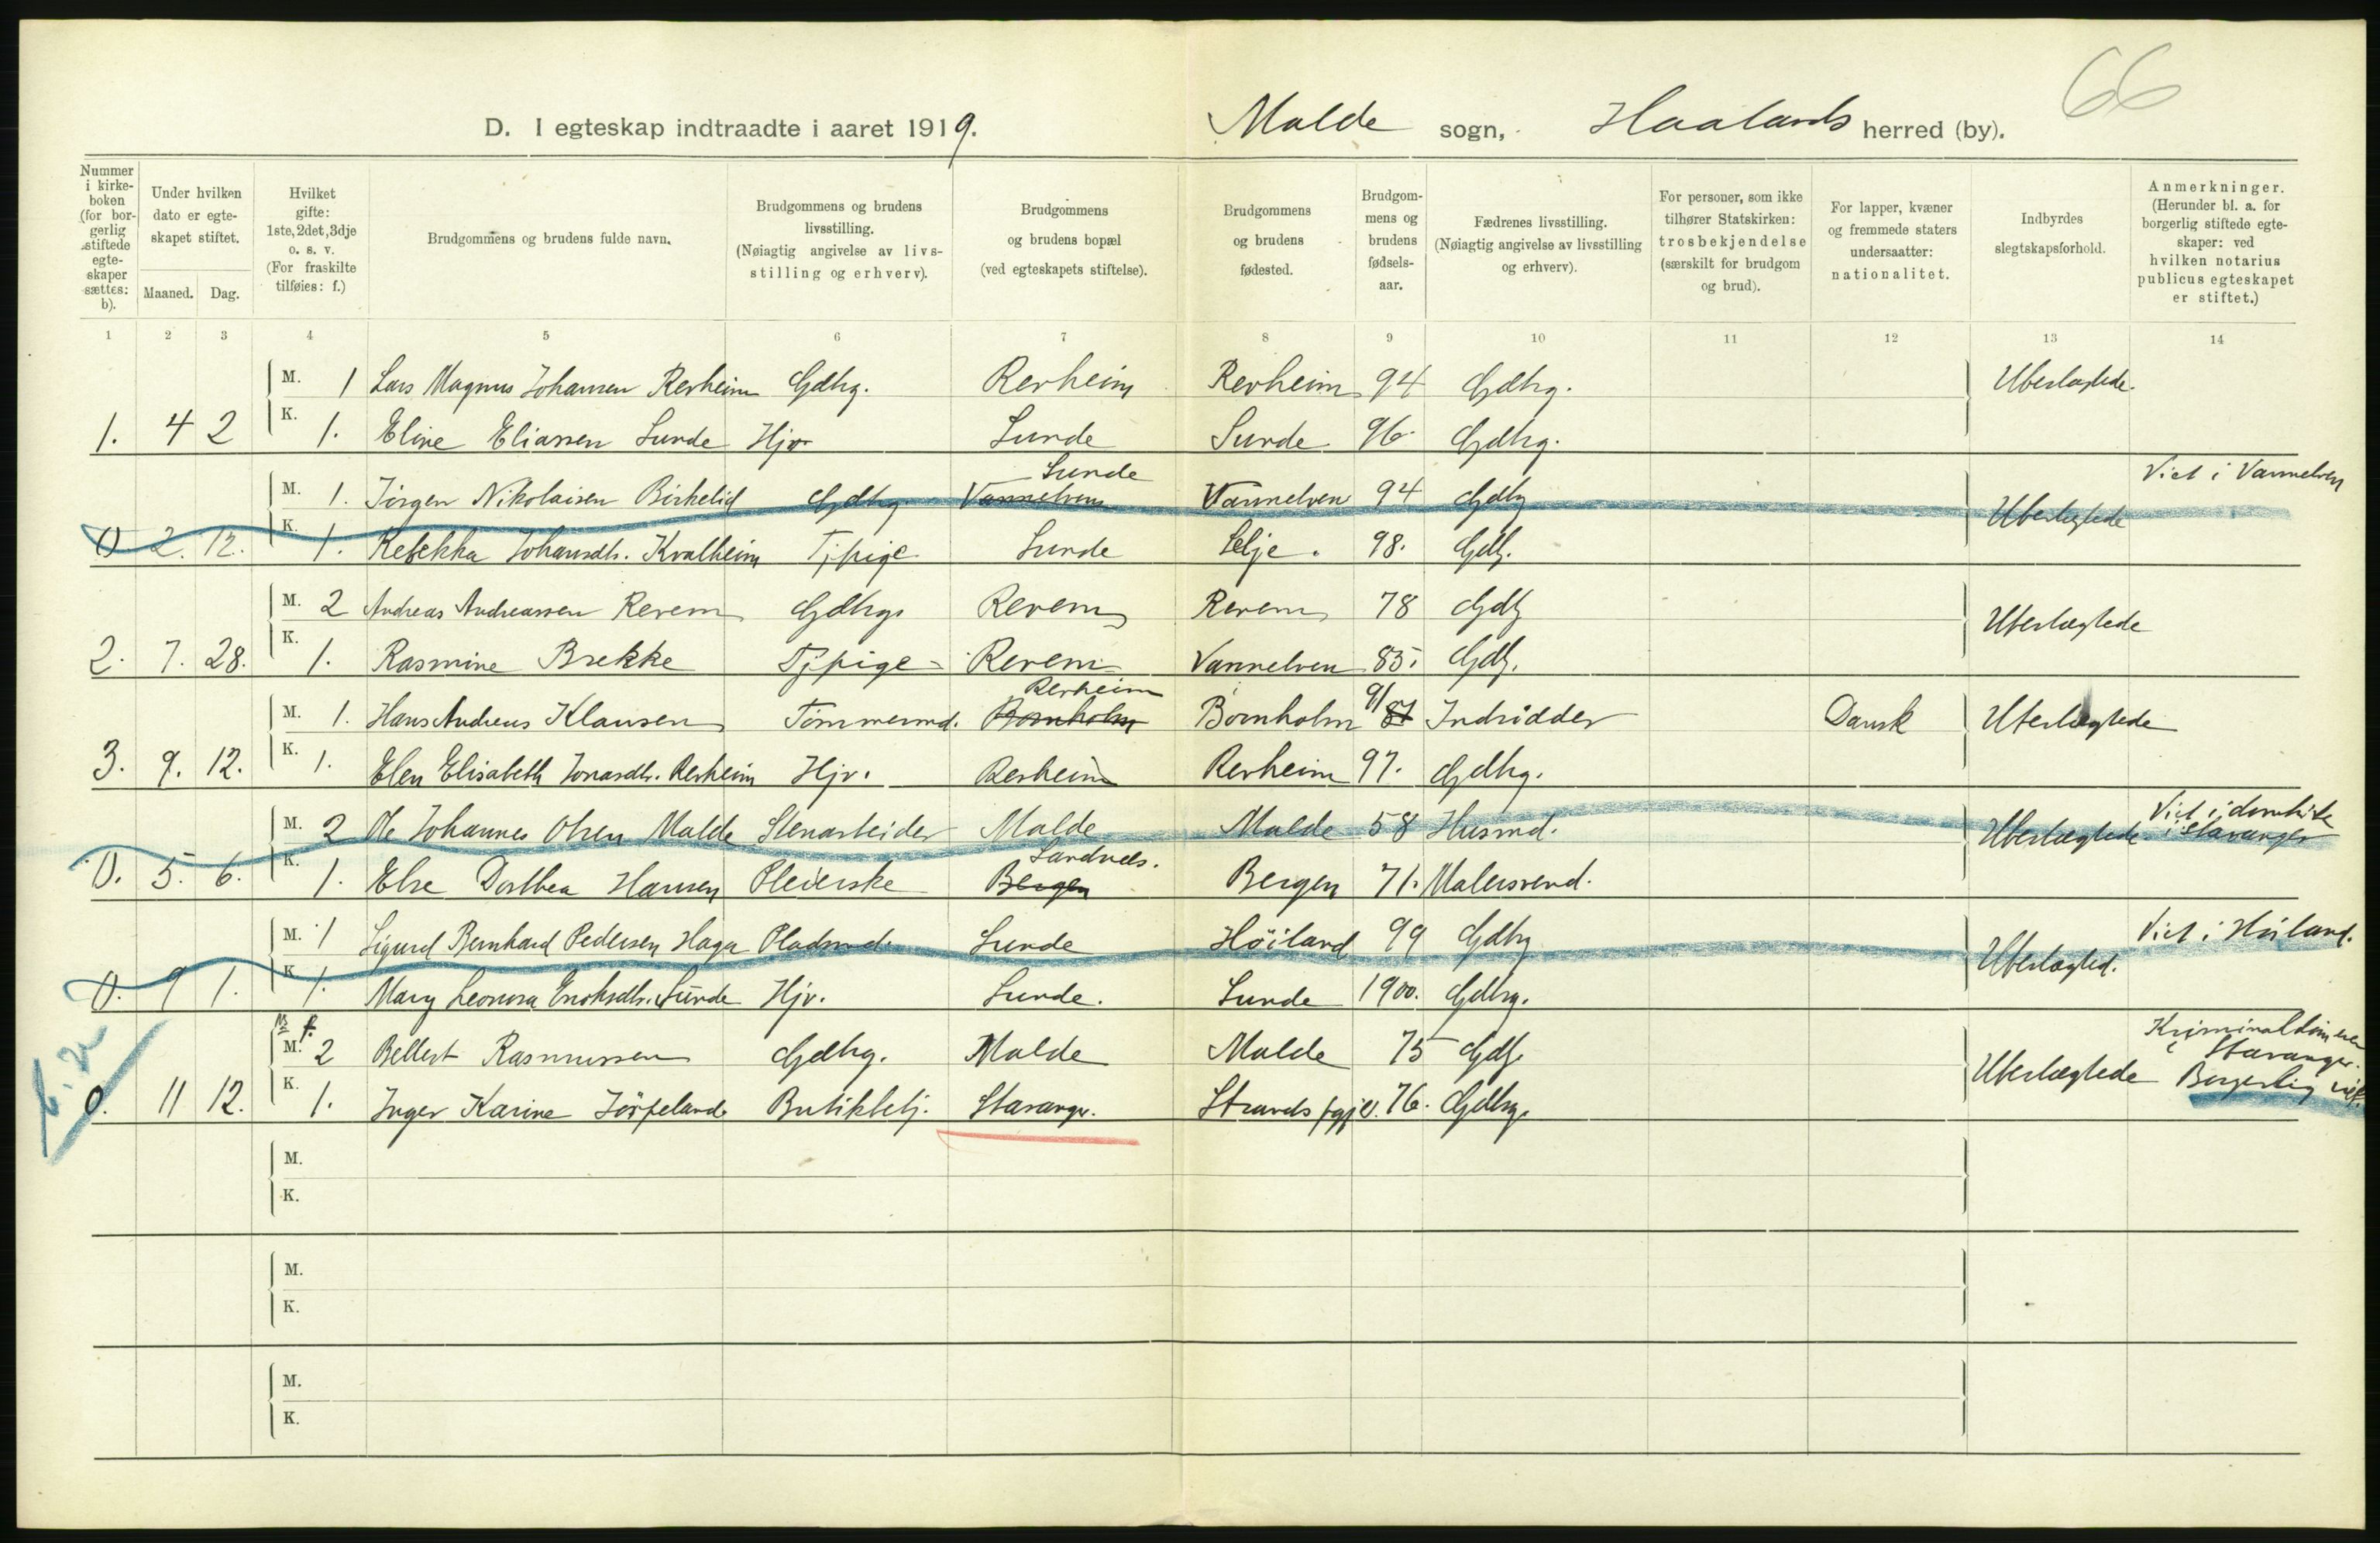 66
D. I egteskap indtraadte i aaret 1919. Malde sogn, Haalands herred (by).
Nummer i kirkeboken (for borgerlig stiftede egteskaper sættes: b).
Under hvilken dato er egteskapet stiftet.
Maaned. Dag.
Hvilket gifte: 1ste, 2det, 3dje o. s. v. (For fraskilte tilføies: f.)
Brudgommens og brudens fulde navn.
Brudgommens og brudens livsstilling. (Nøiagtig angivelse av livsstilling og erhverv).
Brudgommens og brudens bopæl (ved egteskapets stiftelse).
Brudgommens og brudens fødested.
Brudgommens og brudens fødselsaar.
Fædrenes livsstilling. (Nøiagtig angivelse av livsstilling og erhverv).
For personer, som ikke tilhører Statskirken: trosbekjendelse (særskilt for brudgom og brud).
For lapper, kvæner og fremmede staters undersaatter: nationalitet.
Indbyrdes slegtskapsforhold.
Anmerkninger. (Herunder bl. a. for borgerlig stiftede egteskaper: ved hvilken notarius publicus egteskapet er stiftet.)
1 2 3 4 5 6 7 8 9 10 11 12 13 14
M. 1 Lars Magnus Johansen Revheim Gdbrg. Revheim Revheim 94 Gdbrg. Ubeslægtede.
1. 4 2 K. 1. Eline Eliassen Sunde Hjv. Sunde Sunde 96. Gdbrg.
M. 1. Jörgen Nikolaisen Birkelid Gdbrg. Vannelven Sunde Vannelven 94 Gdbg Ubeslegtede Viet i Vannelven
0 2. 12. K. 1. Rebekka Johansdtr. Kvalheim Tj.pige Sunde Selje. 98. Gdb.
M. 2 Andreas Andreassen Revem Gdbrg. Revem Revem 78 Gdb Ubeslægtede
2. 7. 28. K. 1. Rasmine Brekke Tj.pige Revem Vannelven 85. Gdb.
M. 1. Hans Andreas Klausen Tömmermd. Bornholm Revheim Bornholm 87 91 Indsidder Dansk Ubeslægtede
3. 9. 12. K. 1. Elen Elisabeth Jonasdtr. Revheim Hjv. Revheim Revheim 97. Gdbrg.
M. 2 Ole Johannes Olsen Malde Stenarbeider Malde Malde 58 Husmd. Ubeslægtede Viet i domkirke i Stavanger
0. 5. 6. K. 1. Else Dorthea Hansen Pleierske Bergen Sandnes. Bergen 71. Malersvend.
M. 1 Sigurd Bernhard Pedersen Haga Pladsmd. Sunde Höiland 99 Gdbrg Ubeslægted. Viet i Höiland.
0. 9 1. K. 1. Mary Leonora Enoksdtr. Sunde Hjv. Sunde. Sunde 1900. Gdbrg.
M. f. 2 Bellest Rasmussen Gdbrg. Malde Malde 75 Gdb. Ubeslægtede Stavanger. Borgerlig viet.
0. 11 12. K. 1. Inger Karine Jörpeland Butikbetj. Stavanger. Strands pgjld. 76. Gdbrg.
M.
K.
M.
K.
M.
K.